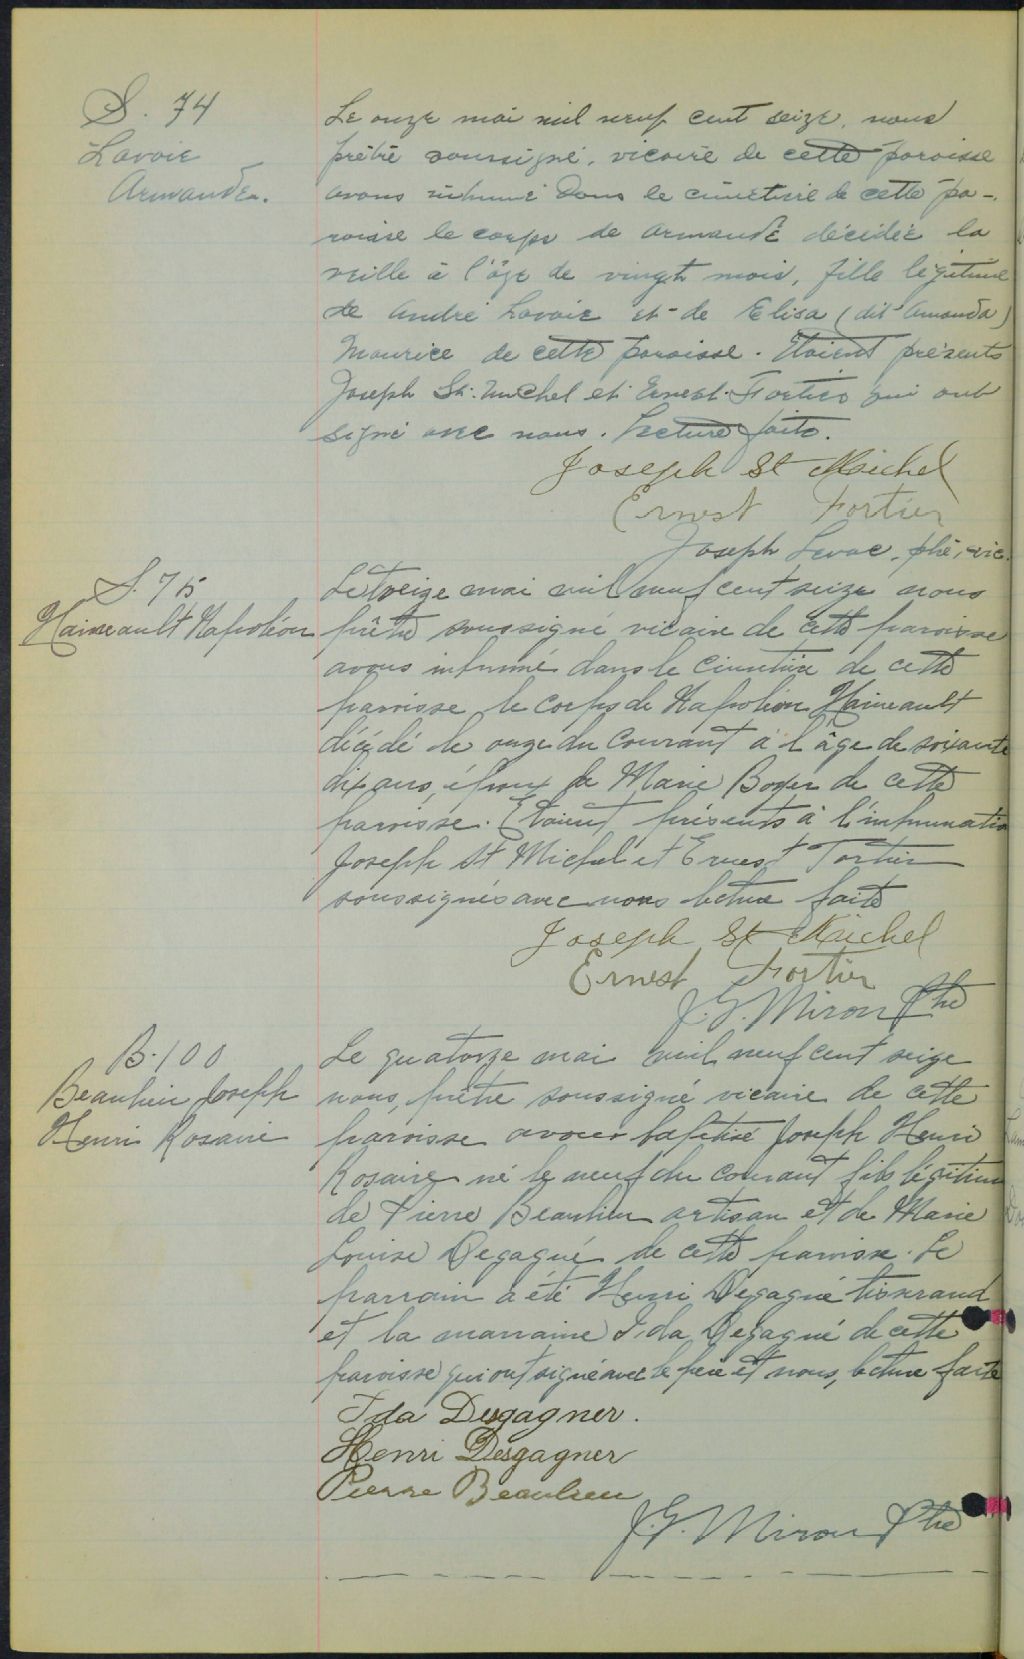 S. 74
Lavoie
Armande.
Le onze mai mil neuf cent seize, nous
prêtre soussigné, vicaire de cette paroisse
avons inhumé dans le cimetière de cette pa-
roisse le corps de Armande décédée la
veille à l'âge de vingt mois, fille légitime
de André Lavoie et de Elisa (dit Amanda)
Maurice de cette paroisse. Etaient présents
Joseph St. Michel et Ernest Fortier qui ont
signé avec nous. Lecture faite.
Joseph St Michel
Ernest Fortier
Joseph Levac, ptre, vic.
S. 75
Haineault Napoléon
Le treize mai mil neuf cent seize nous
prêtre soussigné vicaire de cette paroisse
avons inhumé dans le cimetière de cette
paroisse le corps de Napoléon Haineault
décédé le onze du courant à l'âge de soixante
dix ans, époux de Marie Boyer de cette
paroisse. Etaient présents à l'inhumation
Joseph St Michel et Ernest Fortier
soussignés avec nous lecture faite
Joseph St Michel
Ernest Fortier
J. G. Miron Ptre
B. 100
Beaulieu Joseph
Henri Rosaire
Le quatorze mai mil neuf cent seize
nous, prêtre soussigné vicaire de cette
paroisse avons baptisé Joseph Henri
Rosaire né le neuf du courant fils légitime
de Pierre Beaulieu artisan et de Marie
Louise Degagné de cette paroisse. Le
parrain a été Henri Degagné tisserand
et la marraine Ida Degagné de cette
paroisse qui ont signé avec le père et nous, lecture faite
Ida Desgagner.
Henri Desgagner
Pierre Beaulieu
J. G. Miron Ptre